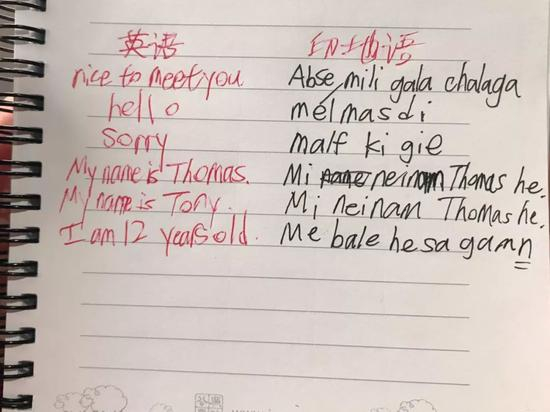 英语 印地语
nice to meet you Abse mili gala chalaga
hello mélmasdi
sorry malf ki gie
My name is Thomas. Mi neinam Thomas he.
My name is Tony. Mi neinam Thomas he.
I am 12 years old. Me bale he sa gamn